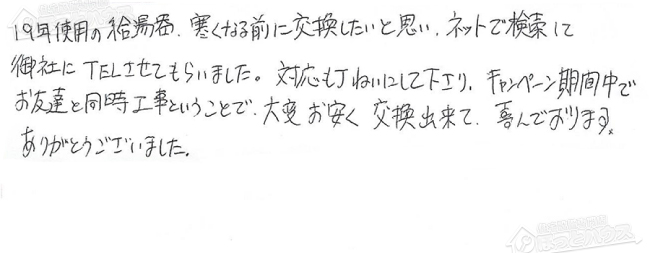 19年使用の給湯器、寒くなる前に交換したいと思い、ネットで検索して
御社にTELさせてもらいました。対応も丁ねいにして下さり、キャンペーン期間中で
お友達と同時工事ということで、大変お安く交換出来て、喜んでおります。
ありがとうございました。